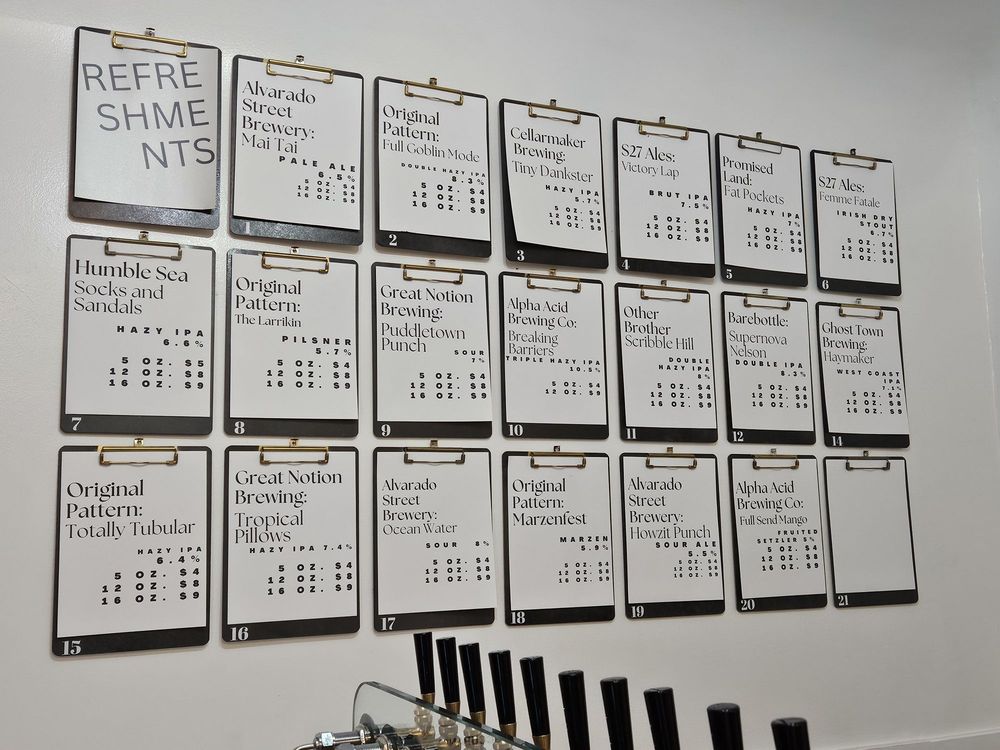 REFRE
SHME
NTS
Alvarado
Street
Brewery:
Mai Tai
PALE ALE
6.5%
5 OZ. $4
12 OZ. $8
16 OZ. $9
1
Original
Pattern:
Full Goblin Mode
DOUBLE HAZY IPA
8.3%
5 OZ. $4
12 OZ. $8
16 OZ. $9
2
Cellarmaker
Brewing:
Tiny Dankster
HAZY IPA
5.7%
5 OZ. $4
12 OZ. $8
16 OZ. $9
3
S27 Ales:
Victory Lap
BRUT IPA
7.5%
5 OZ. $4
12 OZ. $8
16 OZ. $9
4
Promised
Land:
Fat Pockets
HAZY IPA
7%
5 OZ. $4
12 OZ. $8
16 OZ. $9
5
S27 Ales:
Femme Fatale
IRISH DRY
STOUT
6.7%
5 OZ. $4
12 OZ. $8
16 OZ. $9
6
Humble Sea
Socks and
Sandals
HAZY IPA
6.6%
5 OZ. $5
12 OZ. $8
16 OZ. $9
7
Original
Pattern:
The Larrikin
PILSNER
5.7%
5 OZ. $4
12 OZ. $8
16 OZ. $9
8
Great Notion
Brewing:
Puddletown
Punch
SOUR
7%
5 OZ. $4
12 OZ. $8
16 OZ. $9
9
Alpha Acid
Brewing Co:
Breaking
Barriers
TRIPLE HAZY IPA
10.5%
5 OZ. $4
12 OZ. $8
10
Other
Brother
Scribble Hill
DOUBLE
HAZY IPA
8%
5 OZ. $4
12 OZ. $8
16 OZ. $9
11
Barebottle:
Supernova
Nelson
DOUBLE IPA
8.3%
5 OZ. $4
12 OZ. $8
16 OZ. $9
12
Ghost Town
Brewing:
Haymaker
WEST COAST
IPA
7.1%
5 OZ. $4
12 OZ. $8
16 OZ. $9
14
Original
Pattern:
Totally Tubular
HAZY IPA
6.4%
5 OZ. $4
12 OZ. $8
16 OZ. $9
15
Great Notion
Brewing:
Tropical
Pillows
HAZY IPA 7.4%
5 OZ. $4
12 OZ. $8
16 OZ. $9
16
Alvarado
Street
Brewery:
Ocean Water
SOUR 8%
5 OZ. $4
12 OZ. $8
16 OZ. $9
17
Original
Pattern:
Marzenfest
MARZEN
5.9%
5 OZ. $4
12 OZ. $8
16 OZ. $9
18
Alvarado
Street
Brewery:
Howzit Punch
SOUR ALE
5.5%
5 OZ. $4
12 OZ. $8
16 OZ. $9
19
Alpha Acid
Brewing Co:
Full Send Mango
FRUITED
SETZLER 5%
5 OZ. $4
12 OZ. $8
16 OZ. $9
20
21